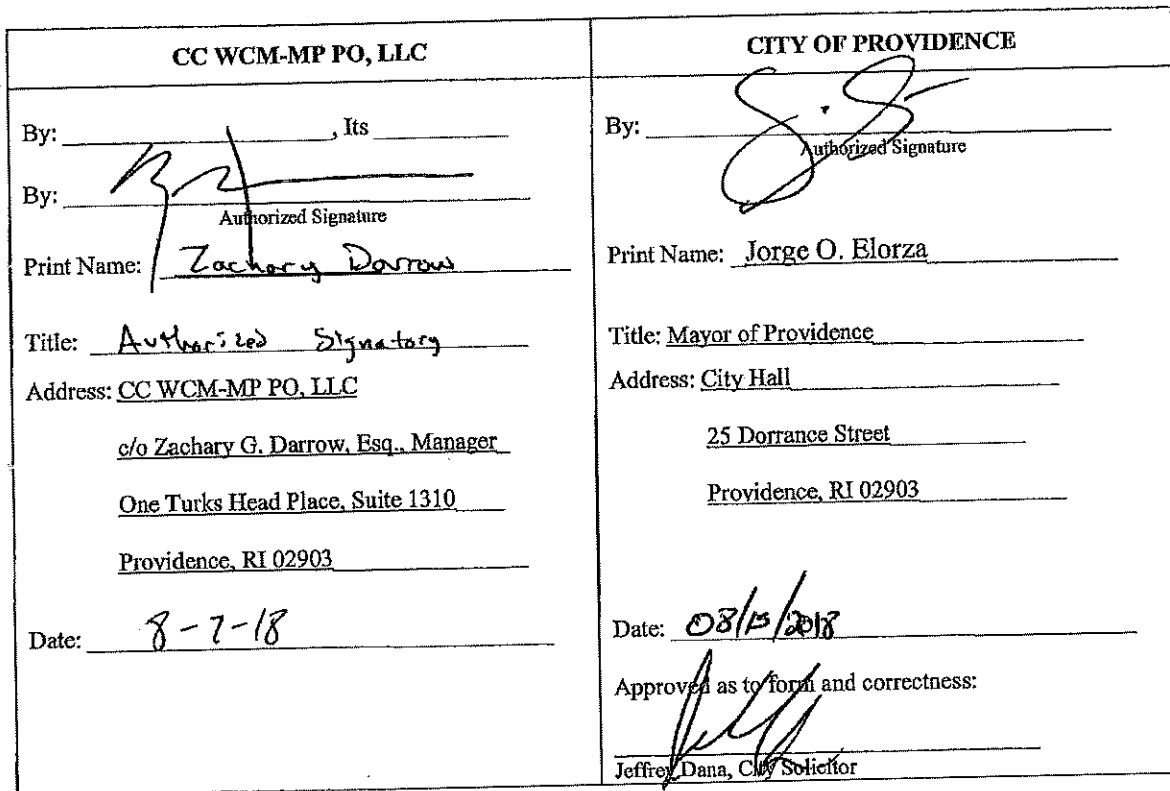 CC WCM-MP PO, LLC
By: , Its
By:
Authorized Signature
Print Name: Zachary Darrow
Title: Authorized Signatory
Address: CC WCM-MP PO, LLC
c/o Zachary G. Darrow, Esq., Manager
One Turks Head Place, Suite 1310
Providence, RI 02903
Date: 8-7-18
CITY OF PROVIDENCE
By:
Authorized Signature
Print Name: Jorge O. Elorza
Title: Mayor of Providence
Address: City Hall
25 Dorrance Street
Providence, RI 02903
Date: 08/15/2018
Approved as to form and correctness:
Jeffrey Dana, City Solicitor